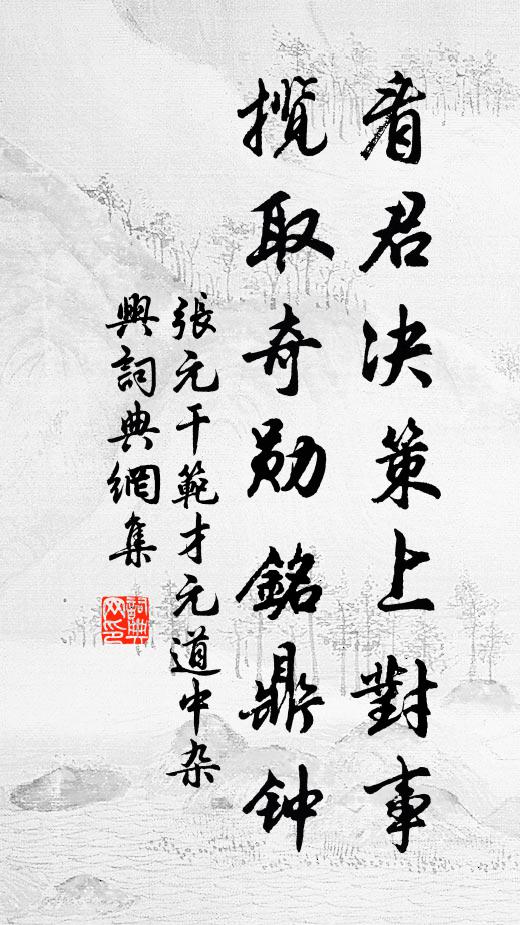 看君决策上對事
攬取奇勛銘鼎钟
張元干範才元道中杂
興詞典網集
詞典
网印